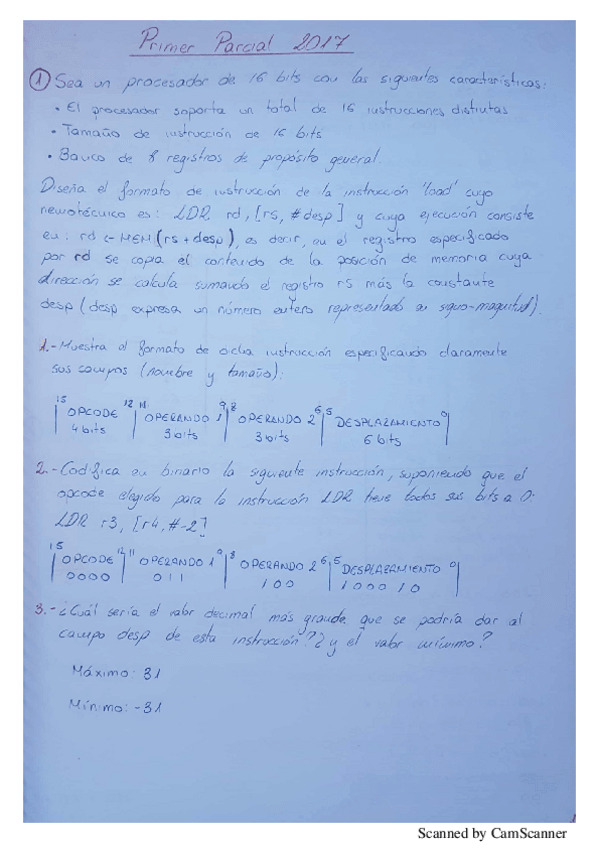 Primer Parcial 2017
1 Sea un procesador de 16 bits con las siguientes características:
• El procesador soporta un total de 16 instrucciones distintas
• Tamaño de instrucción de 16 bits
• Banco de 8 registros de propósito general.
Diseña el formato de instrucción de la instrucción 'load' cuyo
nemotécnico es: LDR rd, [rs, #desp] y cuya ejecución consiste
en: rd <- MEM(rs + desp), es decir, en el registro especificado
por rd se copia el contenido de la posición de memoria cuya
dirección se calcula sumando el registro rs más la constante
desp (desp expresa un número entero representado en signo-magnitud).
1.- Muestra el formato de dicha instrucción especificando claramente
sus campos (nombre y tamaño):
15 12 11 9 8 6 5 0
OPCODE OPERANDO 1 OPERANDO 2 DESPLAZAMIENTO
4 bits 3 bits 3 bits 6 bits
2.- Codifica en binario la siguiente instrucción, suponiendo que el
opcode elegido para la instrucción LDR tiene todos sus bits a 0:
LDR r3, [r4, #-2]
15 12 11 9 8 6 5 0
OPCODE OPERANDO 1 OPERANDO 2 DESPLAZAMIENTO
0000 011 100 1000 10
3.- ¿Cuál sería el valor decimal más grande que se podría dar al
campo desp de esta instrucción? ¿y el valor mínimo?
Máximo: 31
Mínimo: -31
1
Scanned by CamScanner